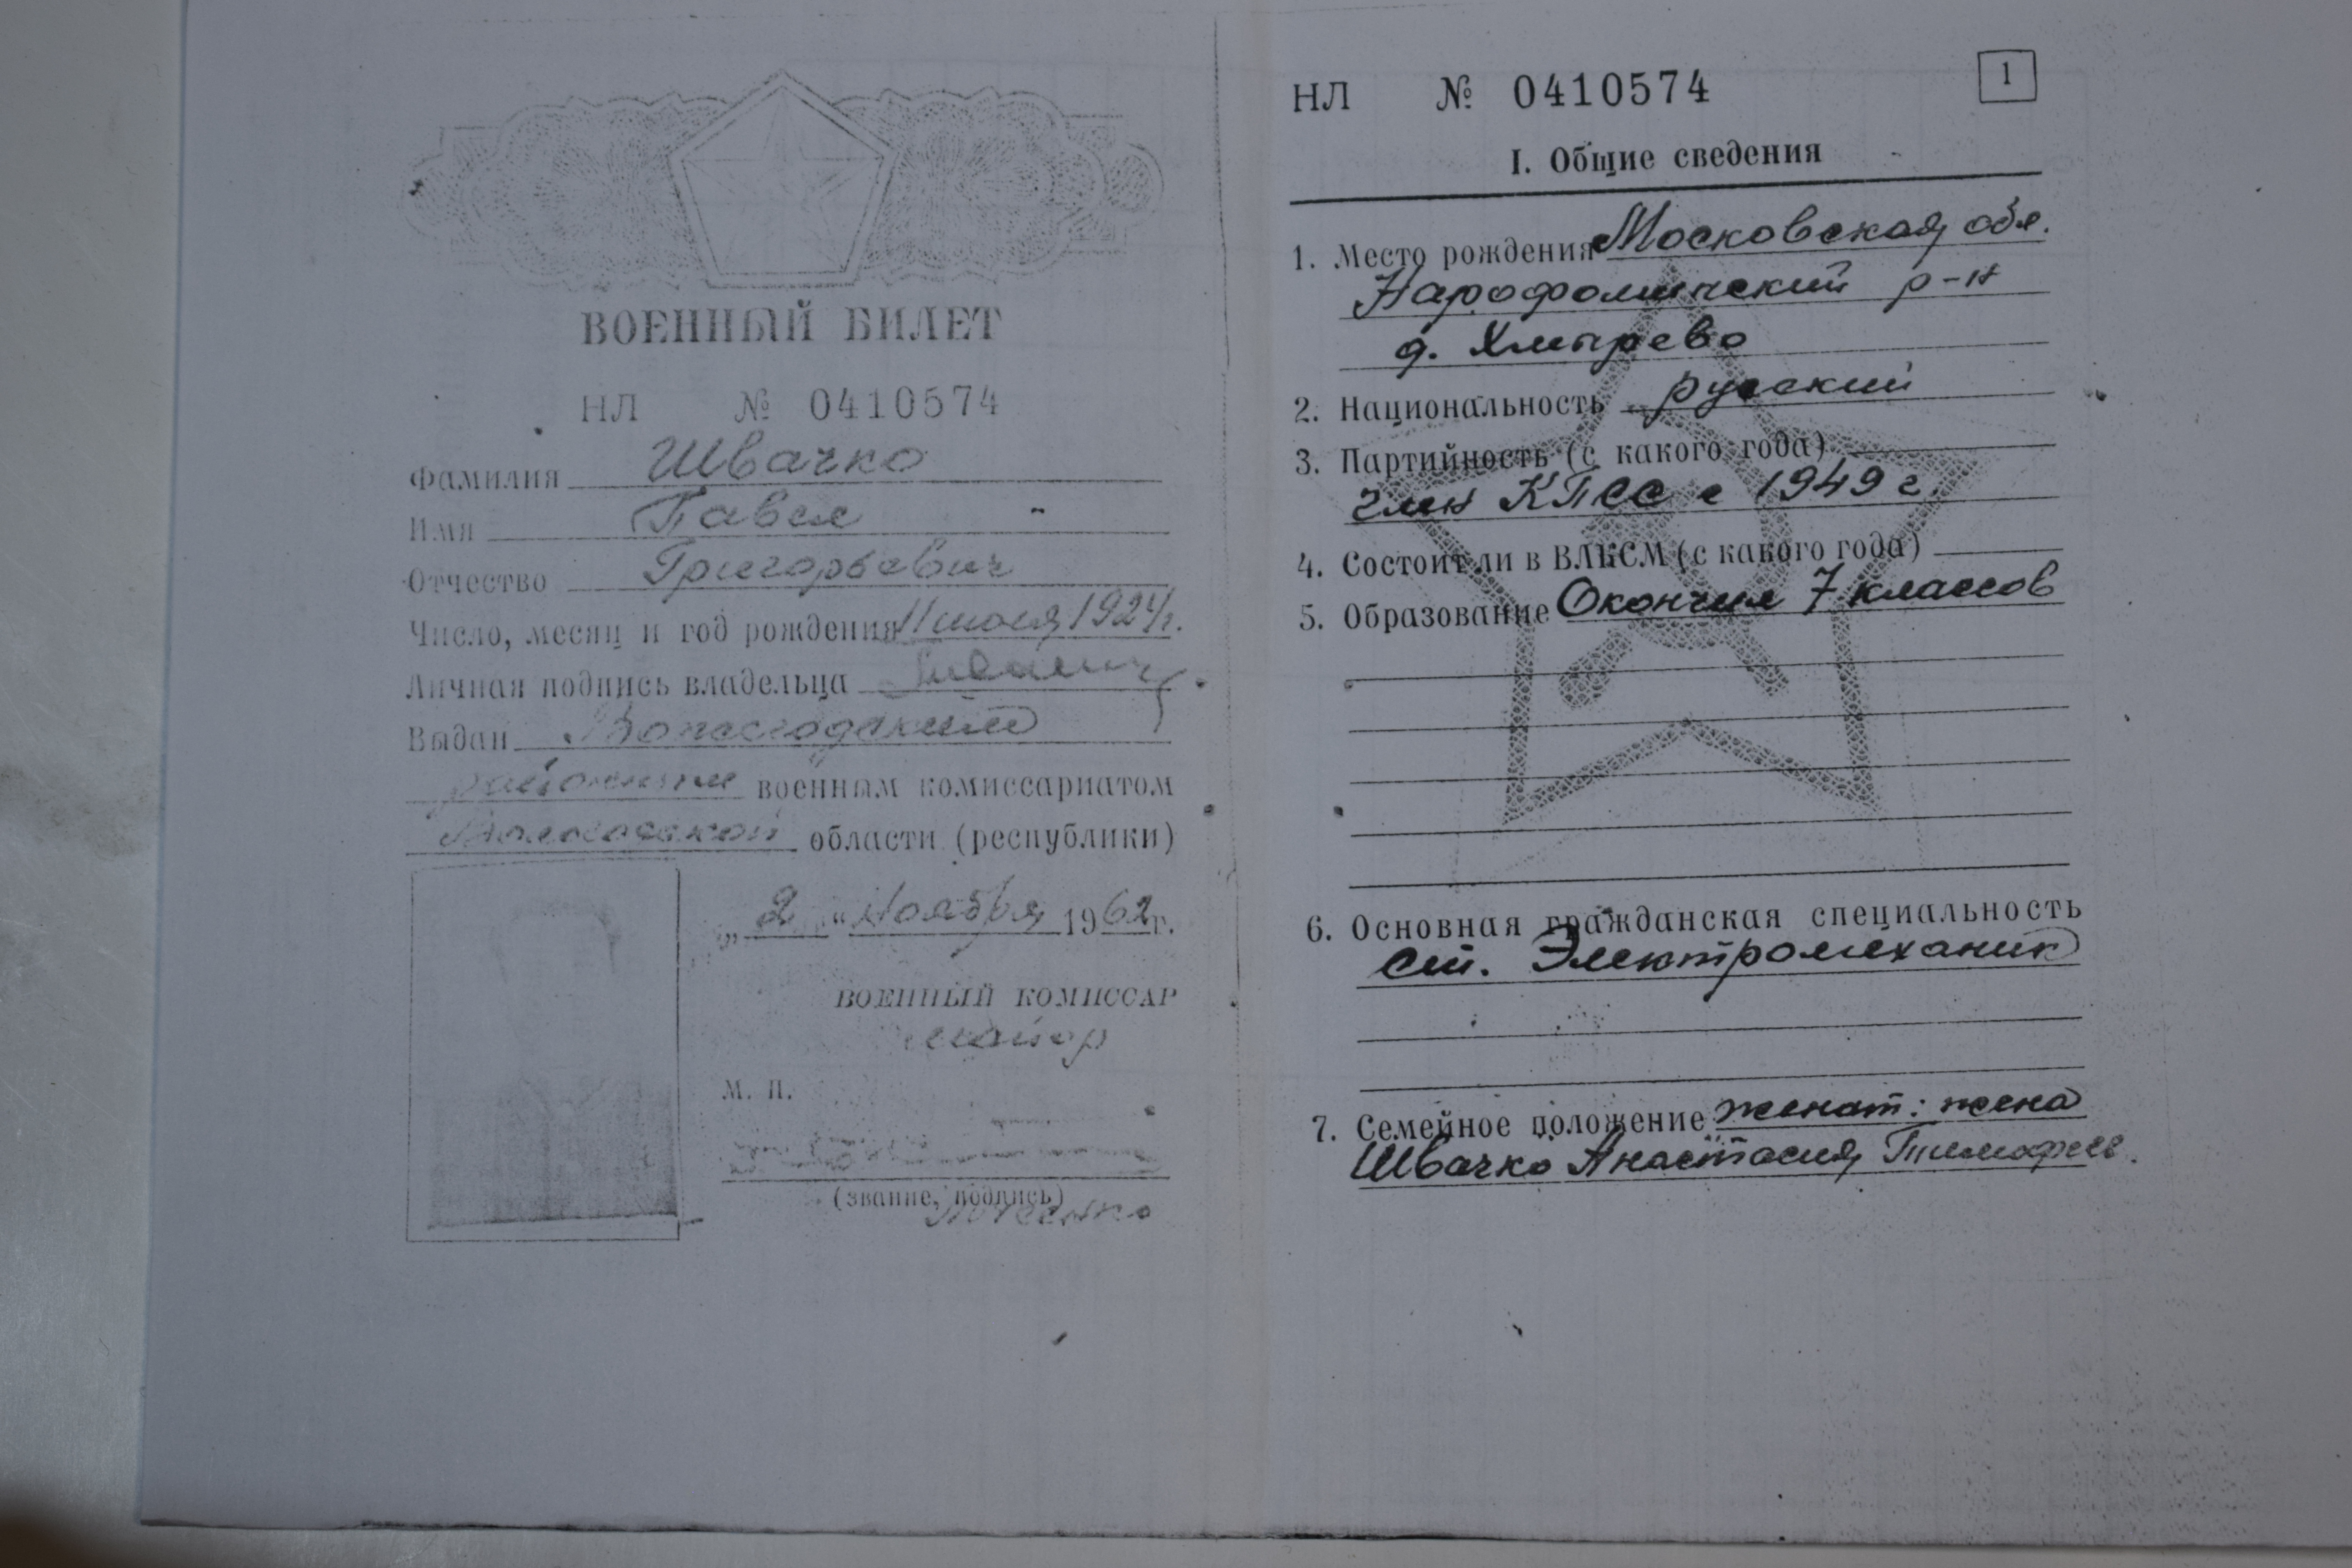 ВОЕННЫЙ БИЛЕТ
НЛ № 0410574
Фамилия Швачко
Имя Павел
Отчество Григорьевич
Число, месяц и год рождения 11 июля 1924 г.
Личная подпись владельца
Выдан Вожегодским
районным военным комиссариатом
Вологодской области (республики)
„2“ ноября 1962 г.
ВОЕННЫЙ КОМИССАР
майор
М. П.
(звание, подпись)
НЛ № 0410574
1
I. Общие сведения
1. Место рождения Московская обл.
Нарофоминский р-н
д. Хмырево
2. Национальность русский
3. Партийность (с какого года)
член КПСС с 1949 г.
4. Состоит ли в ВЛКСМ (с какого года)
5. Образование Окончил 7 классов
6. Основная гражданская специальность
ст. Электромеханик
7. Семейное положение женат: жена
Швачко Анастасия Тимофеев.